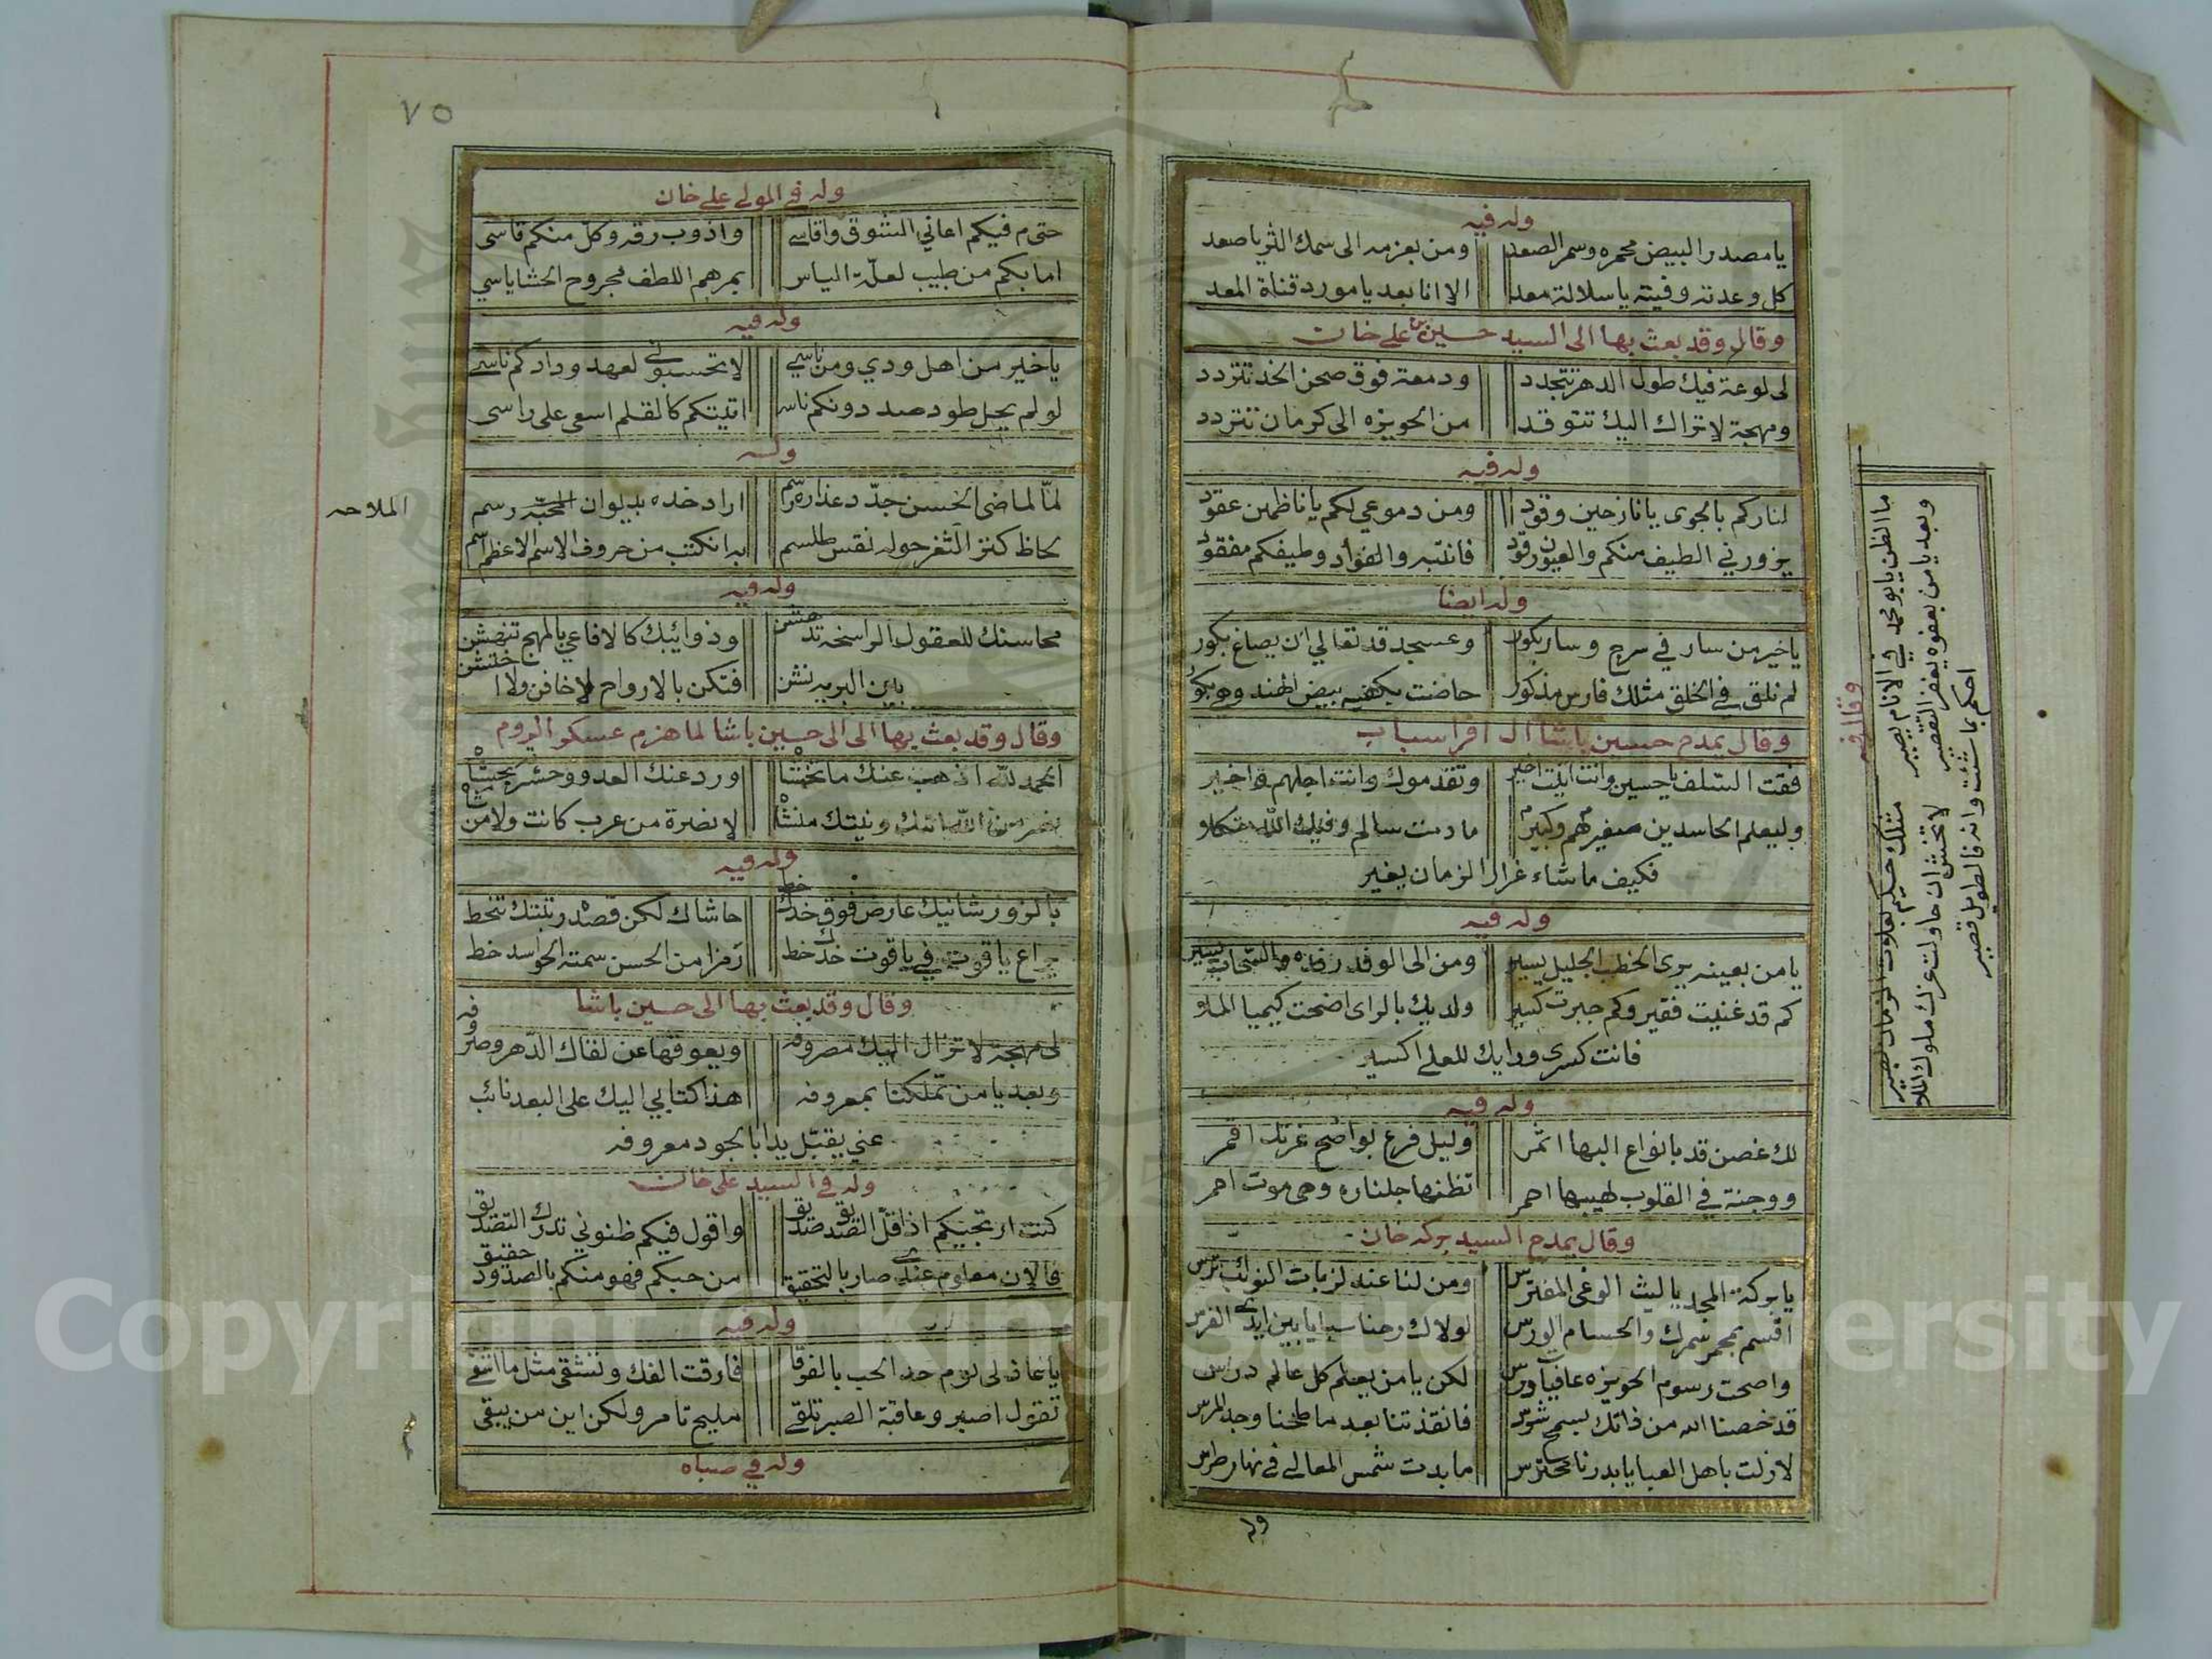 وله فيه
يا مصدر البيض محمره وسمر الصعد ومن بعزمه الى سمك الثريا صعد
كل وعدته وفيته يا سلالة معد الا انا بعد يا مورد قناة المعد
وقال وقد بعث بها الى السيد حسين بن علي خان
لى لوعة فيك طول الدهر تتجدد ودمعة فوق صحن الخد تتردد
ومهجة لا تزال اليك تتوقد من الحويزه الى كرمان تتردد
وله فيه
لناركم بالجوى يا نازحين وقود ومن دموعي لكم يا ناظمين عقود
يزورني الطيف منكم والعيون رقود فانتبه والفؤاد وطيفكم مفقود
وله ايضا
يا خير من سار في سرج وسار بكور وعسجد قد تعالي ان يصاغ بكور
لم نلق في الخلق مثلك فارس مذكور حاضت بكفيه بيض الهند وهي بكور
وقال يمدح حسين باشا ال افراسياب
فقت السلف يا حسين وانت اخير وتقدموك وانت اجلهم واخير
وليعلم الحاسدين صغيرهم وكبير ما دمت سالم وفيك الله
فكيف ما شاء غرار الزمان يغير
وله فيه
يا من بعينه يرى الخطب الجليل يسير ومن الى الوفد رفده والسحاب يسير
كم قد غنيت فقير وكم جبرت كسير ولديك بالراى اضحت كيميا الملا
فانت كسرى ورايك للعلى اكسير
وله فيه
لك غصن قد بانواع البها اثمر وليل فرع بواضح غرتك اقمر
ووجنة في القلوب لهيبها احمر تظنها جلناره وهى موت احمر
وقال يمدح السيد بركه خان
يا بركة المجد يا ليث الوغى المفترس ومن لنا عند لزبات النوائب ترس
اقسم بمجمر سمرك والحسام الورس لولاك رحنا سبايا بين ايدي الفرس
واصحت رسوم الحويزه عافيا ودرس لكن يا من يعلم كل عالم درس
قد خصنا الله من ذاتك بسمح شرس فانقذتنا بعد ما طحنا وجد المرس
لا زلت باهل العبا يا بدرنا محترس ما بدت شمس المعالي في نهار طرس
وله
وقال فيه
ما الظن يا بو محمد في الانام بصير مثلك حكيم بعلات الزمان بصير
وبعد يا من بعفوه يغفر التقصير لا تخش ان حاولت عزك ملوك الملا
احكم بما شئت وانه فالطويل قصير
٧٥
وله في المولى علي خان
حتى م فيكم اعاني الشوق واقاسي واذوب رقه وكل منكم قاسى
اما بكم من طبيب لعلة الياس بمرهم اللطف مجروح الحشا ياسي
وله فيه
يا خير من اهل ودي ومن ناسي لا تحسبوني لعهد ودادكم ناسي
لو لم يحل طود صد دونكم ناسي اتيتكم كالقلم اسعى على راسى
وله
لما لماضى الحسن جدد عذاره رسم اراد خده بديوان المحبه رسم
الملاحه
لحاظ كنز الثغر حوله نقس طلسم به انكتب من حروف الاسم الاعظم اسم
وله فيه
محاسنك للعقول الراسخه تدهشن وذوائبك كالافاعي بالمهج تنهشن
بابن البريه نشن فتكن بالارواح لا خافن ولا اختشن
وقال وقد بعث بها الى الى حسين باشا لما هزم عسكر الروم
الحمد لله اذهب عنك ما تخشا ورد عنك العدو وحشر بجشا
من الله ونيتك منشا لا نضرة من عرب كانت ولا من شا
وله فيه
بالزور شانيك عارض فوق خدك خط حاشاك لكن قصده رتبتك تنحط
يراع ياقوت في ياقوت خدك خط رمزا من الحسن سمته الحواسد خط
وقال وقد بعث بها الى حسين باشا
لى مهجة لا تزال اليك مصروفه ويعوقها عن لقاك الدهر وصروفه
وبعد يا من تملكنا بمعروفه هذا كتابي اليك على البعد نائب
عني يقبل يدا بالجود معروفه
وله في السيد علي خان
كنت ارتجيكم اذا قل الصديق صديق واقول فيكم ظنوني تدرك التصديق
فالان معلوم عندي صار بالتحقيق من حبكم فهو منكم بالصدود حقيق
وله فيه
يا عاذلى لوم حد الحب بالفوقا فارقت الفك وتشقى مثل ما اشقى
تقول اصبر وعاقبة الصبر تلقى مليح تامر ولكن اين من يبقى
وله في صباه
Copyright © King Saud University